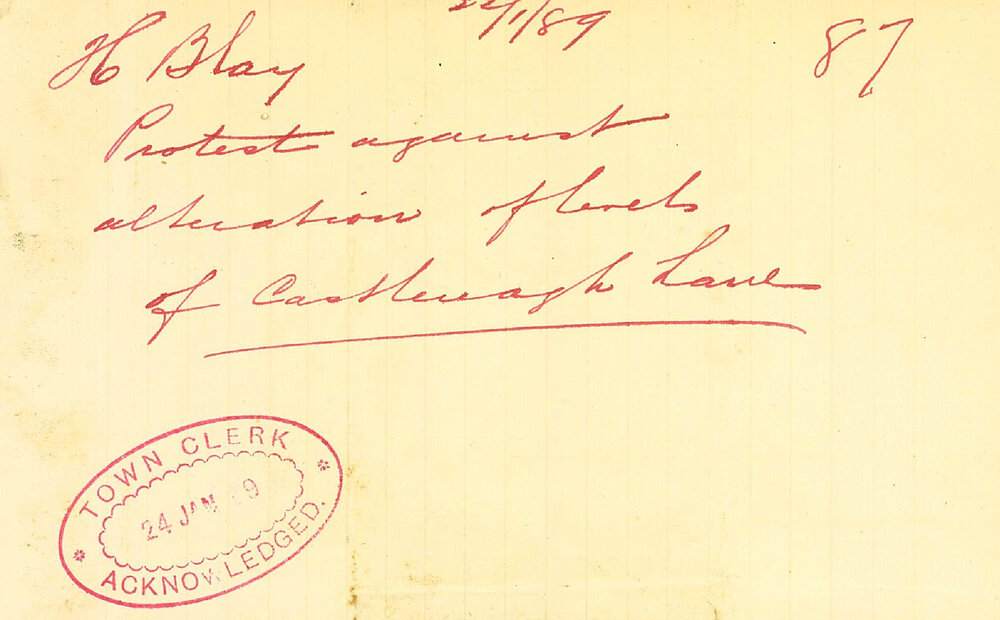 22/1/89
H Blay 87
Protest against
alteration of levels
of Castlereagh Lane
TOWN CLERK
24 JAN 9
ACKNOWLEDGED.